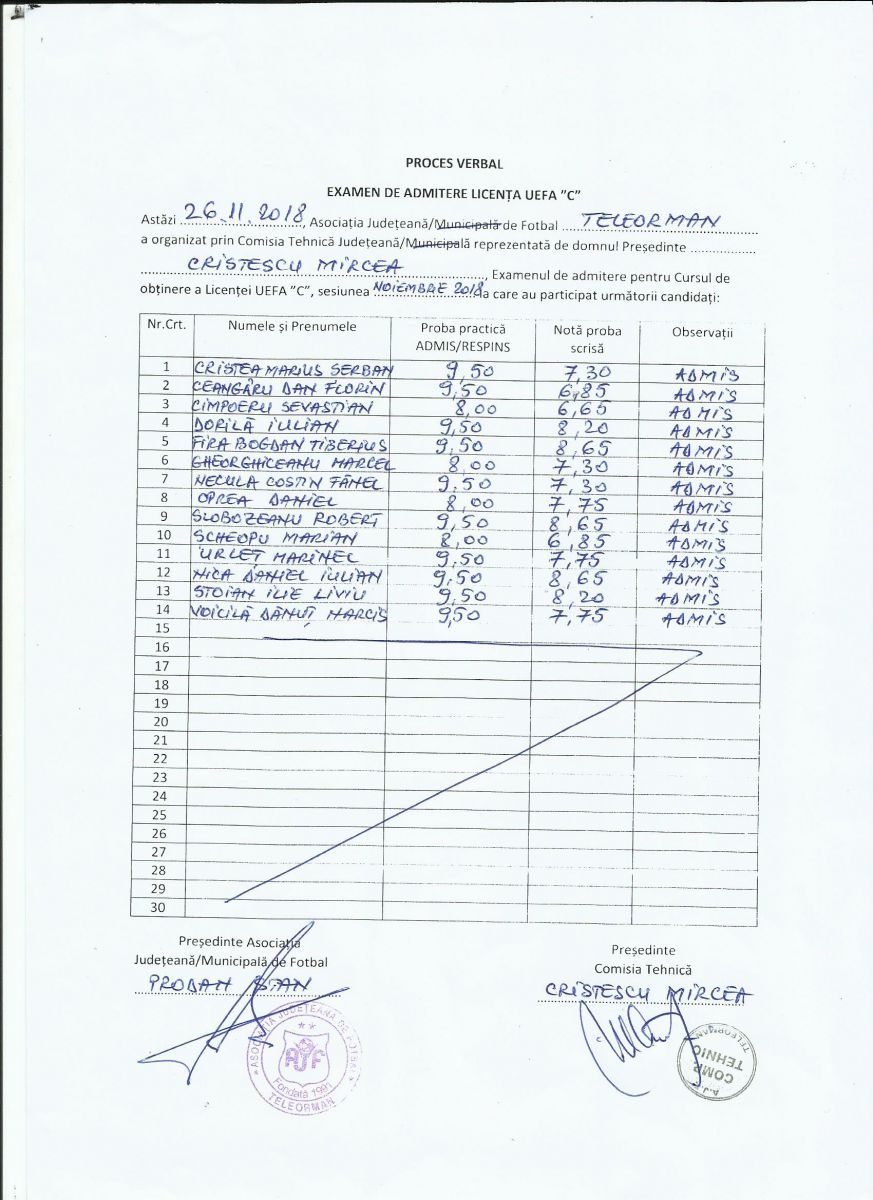 PROCES VERBAL
EXAMEN DE ADMITERE LICENȚA UEFA ”C”
Astăzi 26.11.2018, Asociația Județeană/Municipală de Fotbal TELEORMAN
a organizat prin Comisia Tehnică Județeană/Municipală reprezentată de domnul Președinte
CRISTESCU MIRCEA, Examenul de admitere pentru Cursul de
obținere a Licenței UEFA ”C”, sesiunea NOIEMBRIE 2018 la care au participat următorii candidați:
Nr.Crt. Numele și Prenumele Proba practică ADMIS/RESPINS Notă proba scrisă Observații
1 CRISTEA MARIUS SERBAN 9,50 7,30 ADMIS
2 CEANGĂRU DAN FLORIN 9,50 6,85 ADMIS
3 CIMPOERU SEVASTIAN 8,00 6,65 ADMIS
4 DORILĂ IULIAN 9,50 8,20 ADMIS
5 FIRA BOGDAN TIBERIUS 9,50 8,65 ADMIS
6 GHEORGHICEANU MARCEL 8,00 7,30 ADMIS
7 NECULA COSTIN FĂNEL 9.50 7,30 ADMIS
8 OPREA DANIEL 8,00 7,75 ADMIS
9 SLOBOZEANU ROBERT 9,50 8,65 ADMIS
10 SCHEOPU MARIAN 8,00 6,85 ADMIS
11 URLET MARINEL 9,50 7,75 ADMIS
12 NICA DANIEL IULIAN 9,50 8,65 ADMIS
13 STOIAN ILIE LIVIU 9,50 8,20 ADMIS
14 VOICILĂ DĂNUȚ NARCIS 9,50 7,75 ADMIS
15
16
17
18
19
20
21
22
23
24
25
26
27
28
29
30
Președinte Asociația
Județeană/Municipală de Fotbal
PRODAN STAN
Președinte
Comisia Tehnică
CRISTESCU MIRCEA
ASOCIAȚIA JUDEȚEANĂ DE FOTBAL
AJF
Fondată 1991
TELEORMAN
A.J.F.
TELEORMAN
COMP.
TEHNIC